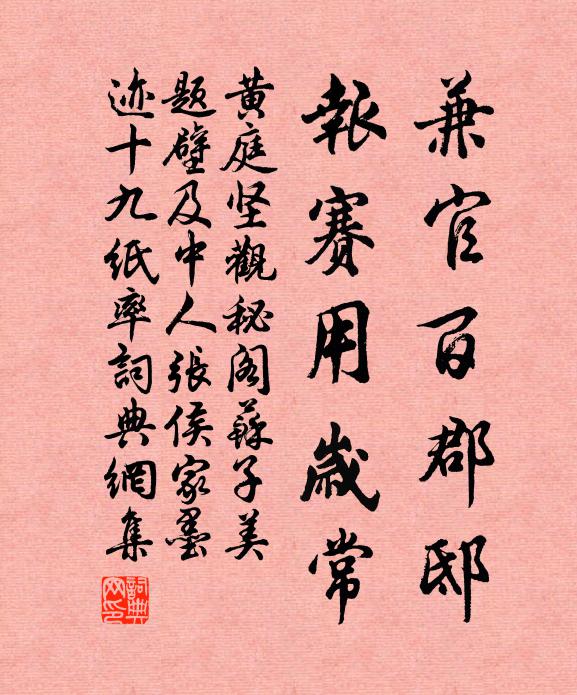 兼官百郡邸
報賽用歲常
黄庭坚觀秘阁蘇子美
题壁及中人張侯家墨
迹十九纸率詞典網集
詞典網印